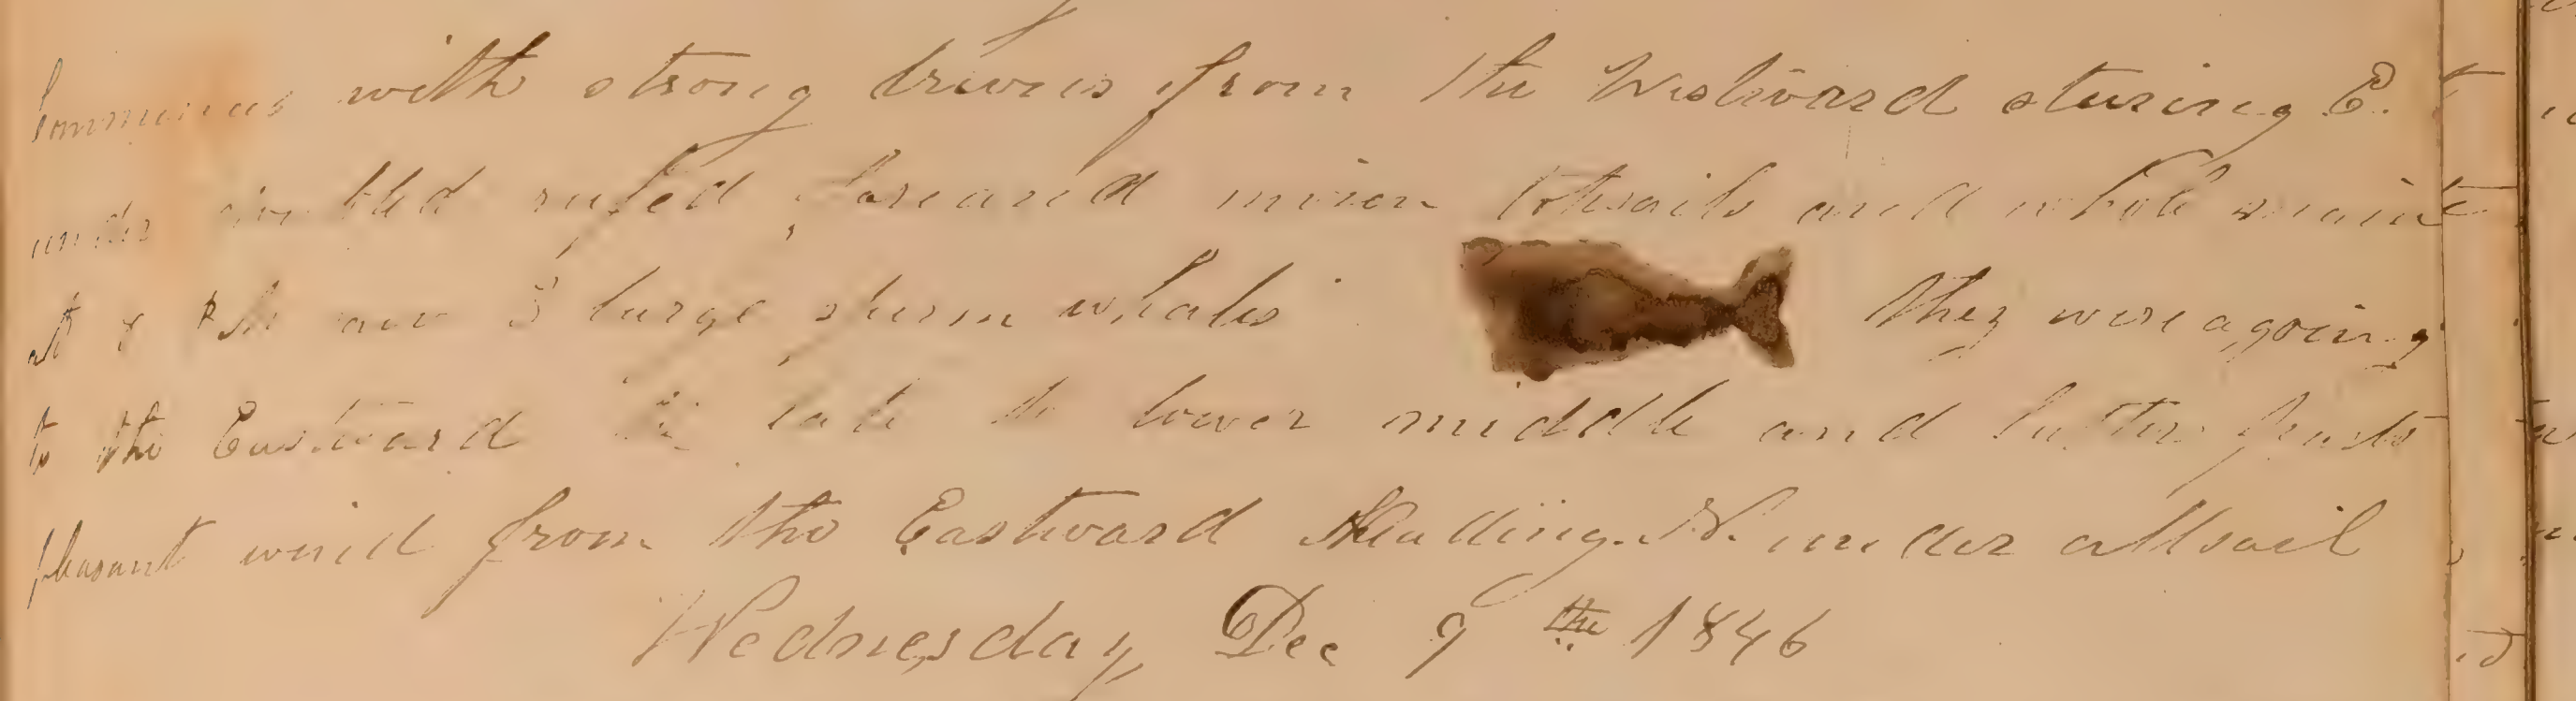 Commences with strong breezes from the Westward sturing E.
under dou bld reefed fore and mizen topsails and whole maint
at 8 PM saw 3 large sperm whales they were a going
to the Eastward to late to lower middle and latter parts
pleasant wind from the Eastward Heading N. under all sail
Wednesday Dec 9th 1846